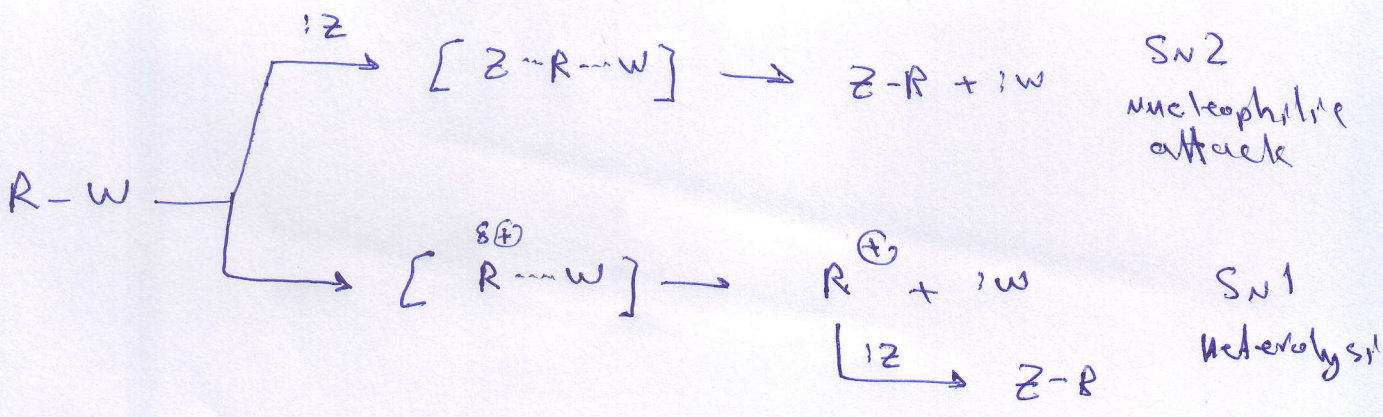 :Z
[ Z···R···W ] → Z-R + :W
SN2
nucleophilic
attack
R-W
δ⊕
[ R····W ] → R⊕ + :W
SN1
Heterolysi
:Z
Z-R